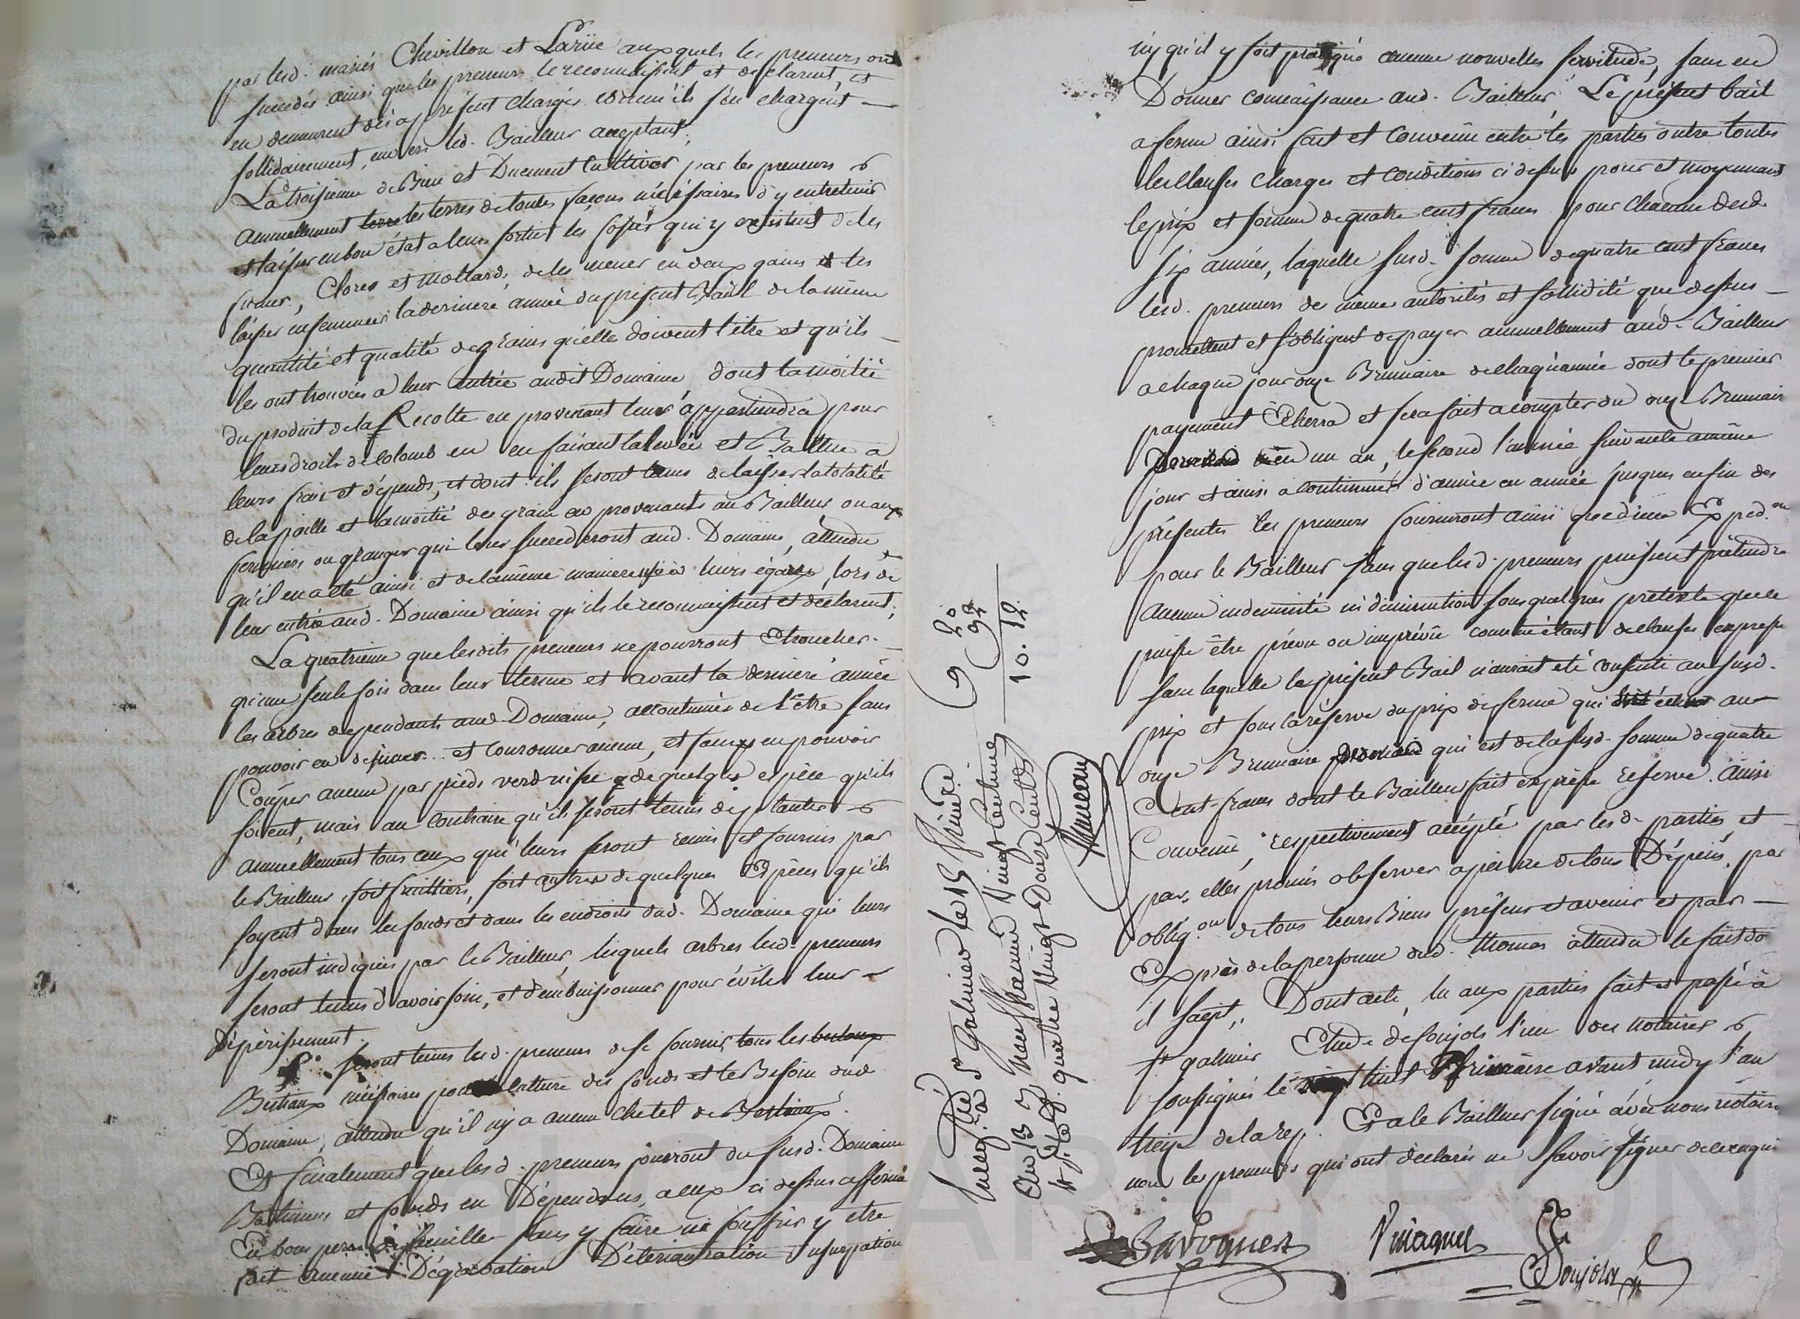 par lesd. mariés Chevillon et Larüe auxquels les preneurs ont
succédés ainsi que les preneurs le reconnaissent et declarent, et
en demeurent dès à présent chargés comme ils s'en chargent —
sollidairement, envers led. Bailleur acceptant;
La troisieme de Bien et Duement Cultiver, par les preneurs
annuellement les terres de toutes façons nécéssaires d'y entretenir
et laisser en bon état a leur sortie les fossés qui y existent de les
fumer, Clores et mottards, de les mener en deux gains et les
laisser ensemencés la derniere année du présent Bail de la même
quantité et qualité de grains qu'elle doivent l'être et qu'ils —
les ont trouvées a leur entrée audit Domaine, dont la moitié
du produit de la Recolte en provenant leur appartiendra pour
leurs droits de Colons en en faisant la levée et Battue a
leurs frais et dépends, et dont ils seront tenus de laisser la totalité
de la paille et la moitié des grains en provenants au Bailleur ou aux
fermiers ou grangers qui leur succederont aud. Domaine, attendu
qu'il en a été ainsi et de la même maniere usé a leurs égards, lors de
leur entrée aud. Domaine ainsi qu'ils le reconnaissent et declarent;
La quatrieme que lesdits preneurs ne pourront Etroncher —
qu'une seule fois dans leur terme et avant la derniere année
les arbres dependants aud. Domaine, accoutumés de l'etre sans
pouvoir en et couronner aucun, et sans en pouvoir
Couper aucun par pieds verd ni sec de quelque espèce qu'ils
soient, mais au contraire qu'ils seront tenus de planter
annuellement tous ceux qui leurs seront remis et fournis par
le Bailleur, soit fruitiers, soit autres de quelques Espèces qu'ils
soyent dans les fonds et dans les endroits dud. Domaine qui leurs
seront indiqués par le Bailleur, lesquels arbres lesd. preneurs
seront tenus d'avoir soin, et d'embuissonner pour éviter leur —
dépérissement.
Seront tenus lesd. preneurs de se fournir tous les
Bestiaux nécéssaires pour culture des fonds et le Besoin dud.
Domaine, attendu qu'il n'y a aucun chetel de Bestiaux.
Et finalement que lesd. preneurs jouiront du susd. Domaine
Batimens et fonds en Dépendans, a eux ci dessus affermé
En bons peres de famille sans y faire ni souffrir y etre
fait aucune Dégradation Déterioration Usurpation
ny qu'il y soit pratiqué aucune nouvelles servitude, sans en
Donner connaissance aud. Bailleur; Le présent bail
a ferme ainsi fait et convenu entre les parties outre toutes
les Clauses charges et conditions ci dessus pour et moyennant
le prix et somme de quatre cent francs pour chacune desd.
six années, laquelle susd. somme de quatre cent francs
lesd. preneurs de même autorités et sollidité que dessus —
promettent et s'obligent de payer annuellement aud. Bailleur
a chaque jour onze Brumaire de chaque année dont le premier
payement Echerra et sera fait a compter du onze Brumaire
en un an, le second l'année suivante a même
jour et ainsi a continuer d'année en année jusques en fin des
présentes les preneurs fourniront ainsi que dune Exped.on
pour le Bailleur sans que lesd. preneurs puissent prétendre
aucune indemnité ni diminution sous quelques pretexte que ce
puisse être prévu ou imprévu comme étant de clause expresse
sans laquelle le présent Bail n'aurait été consenti au susd.
prix et sous la réserve du prix de ferme qui au
onze Brumaire qui est de la susd. somme de quatre
Cent francs dont le Bailleur fait expresse reserve. ainsi
Convenu, respectivement accépté par lesd. parties et —
par elles promis observer a peine de tous Dépens, par
oblig.on de tous leurs Biens présens et avenir et par —
Exprès de la personne dud. thomas attendu le fait dont
il sagit. Dont acte, lu aux parties fait et passé à
St galmier Etude de Soujols l'un des notaires
soussignés le huit Frimaire avant midy l'an
treize de la rep. Et a le Bailleur signé avec nous notaires
non les preneurs qui ont déclarés ne savoir signer de ce enquis
Bavoguer Vinagnes Soujols
Enreg. à St Galmier le 15 Frimaire
An 13 Reçu neuf francs Vingt Centimes
et quatre Vingt Douze Centes
9 20
92
10. 12